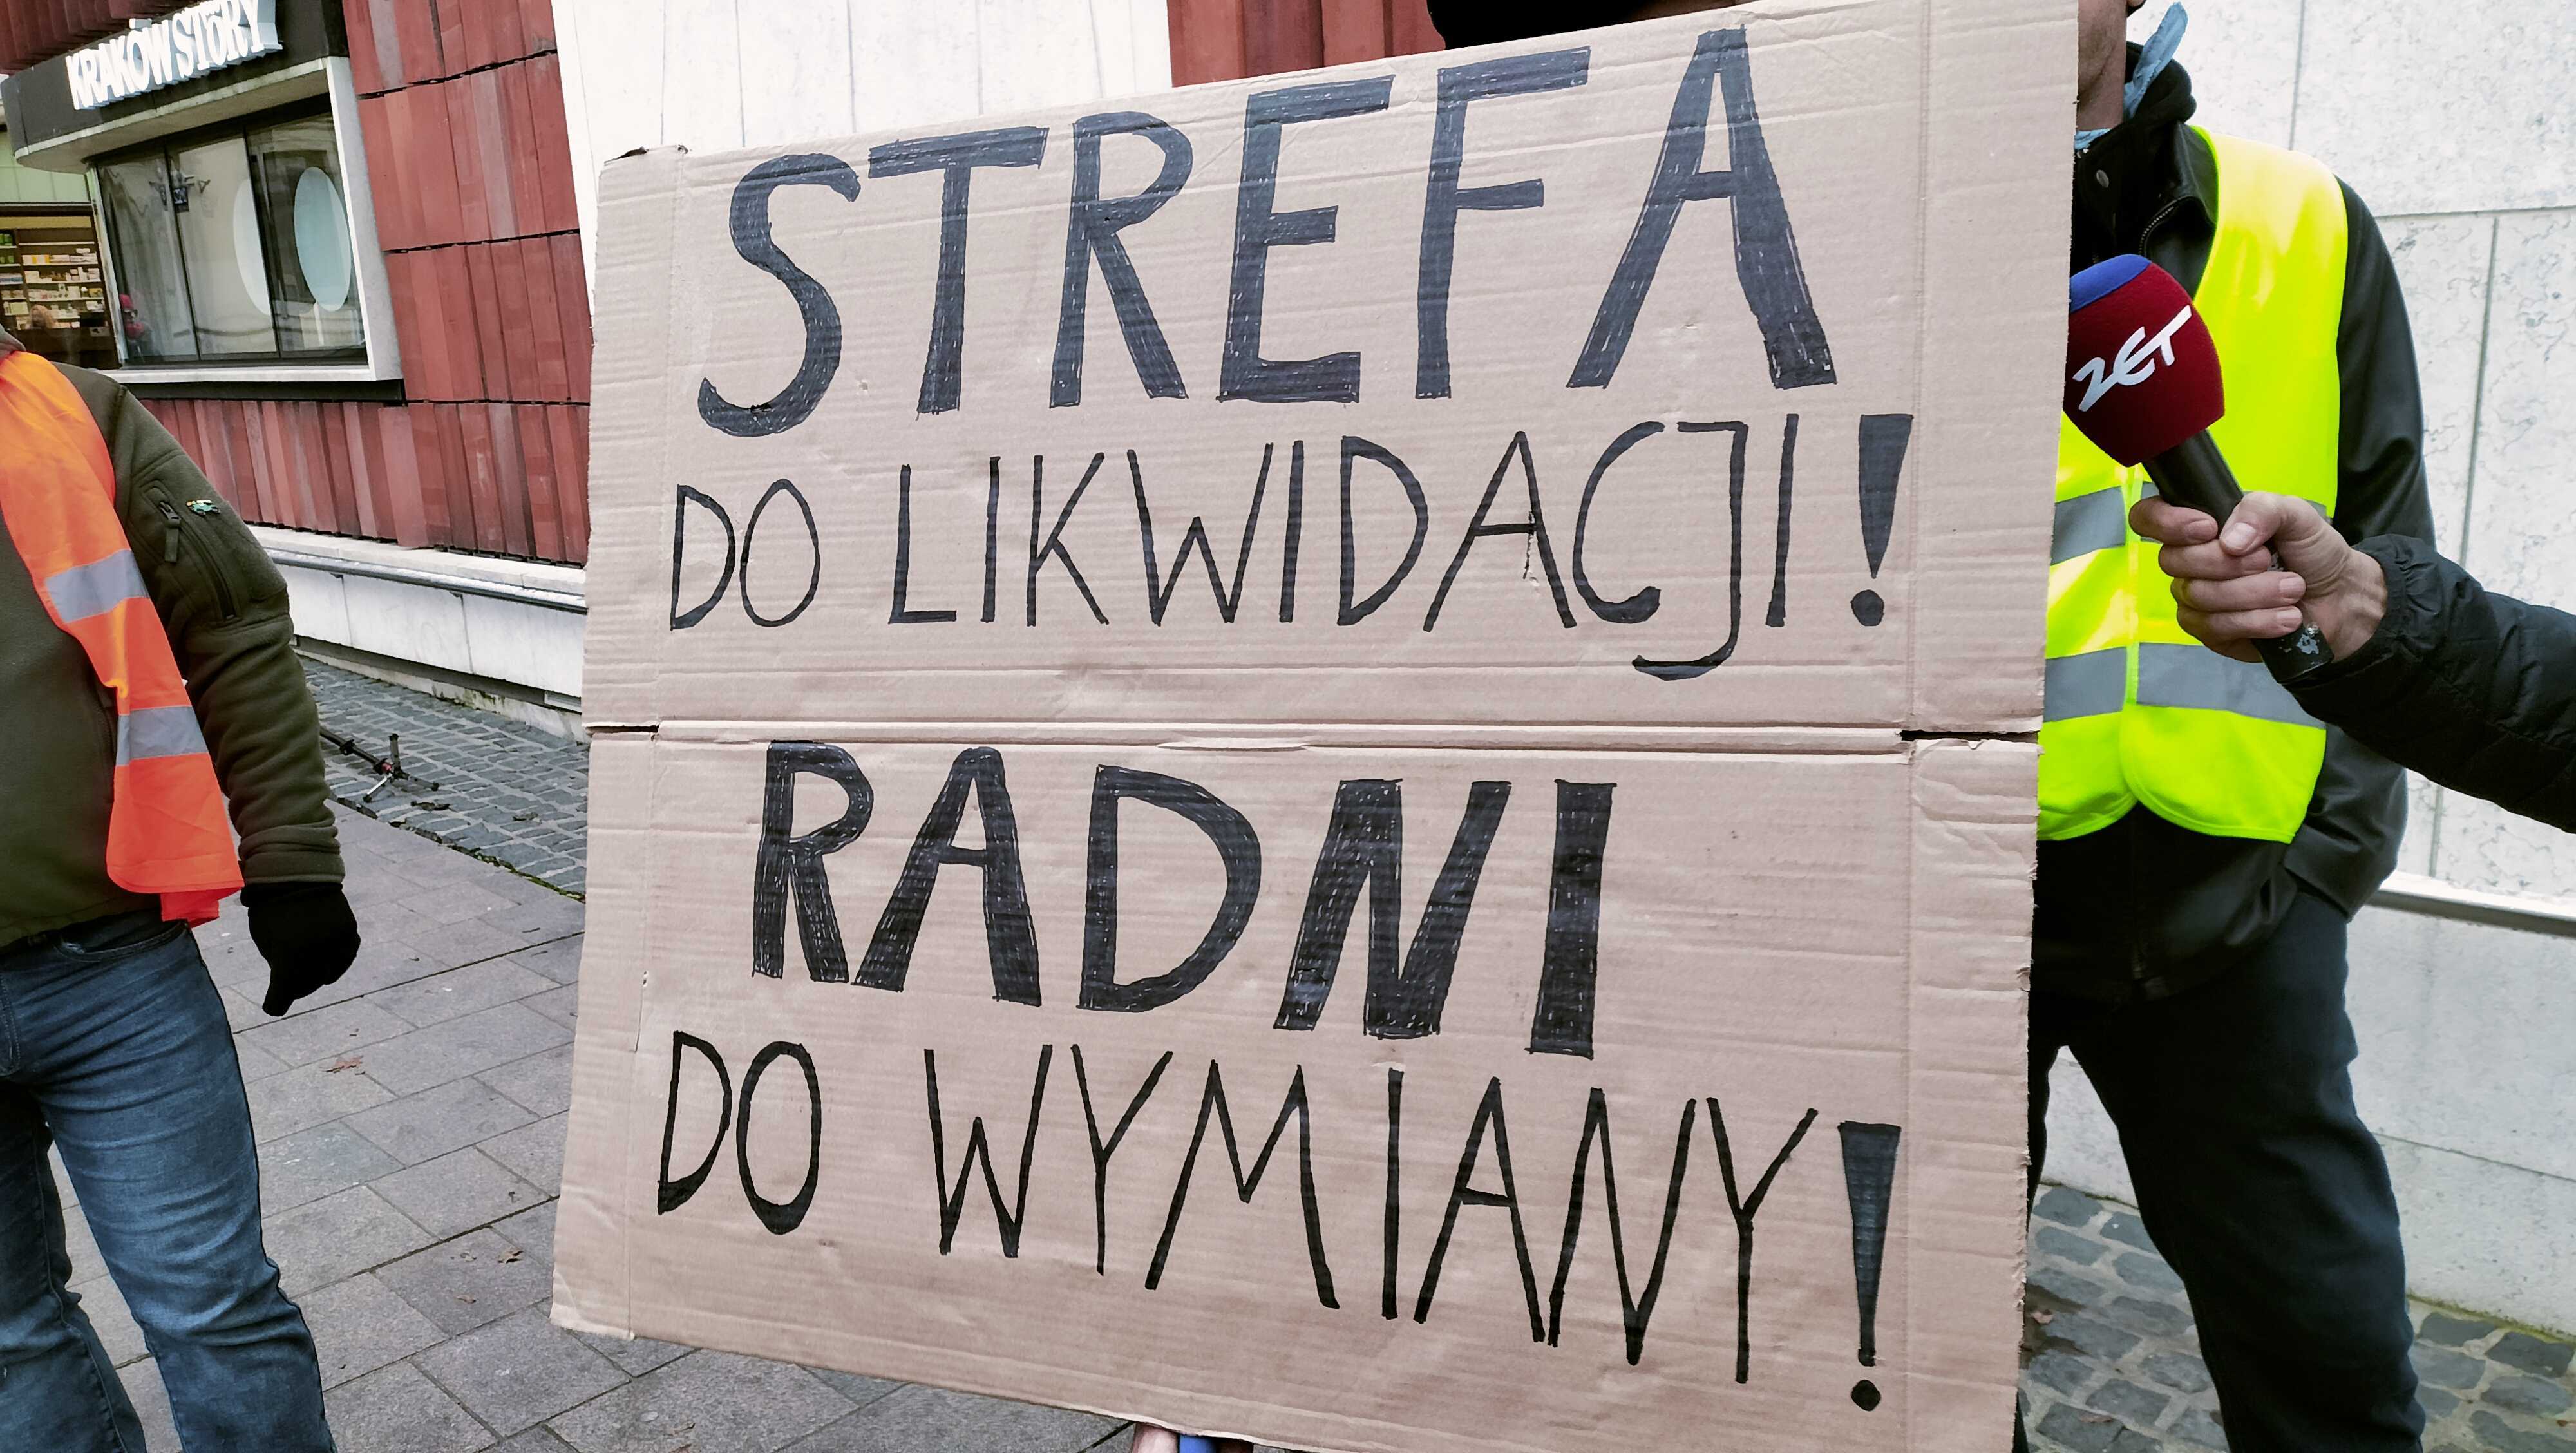 KRAKÓW STORY
STREFA
DO LIKWIDACJI!
ZET
RADNI
DO WYMIANY!